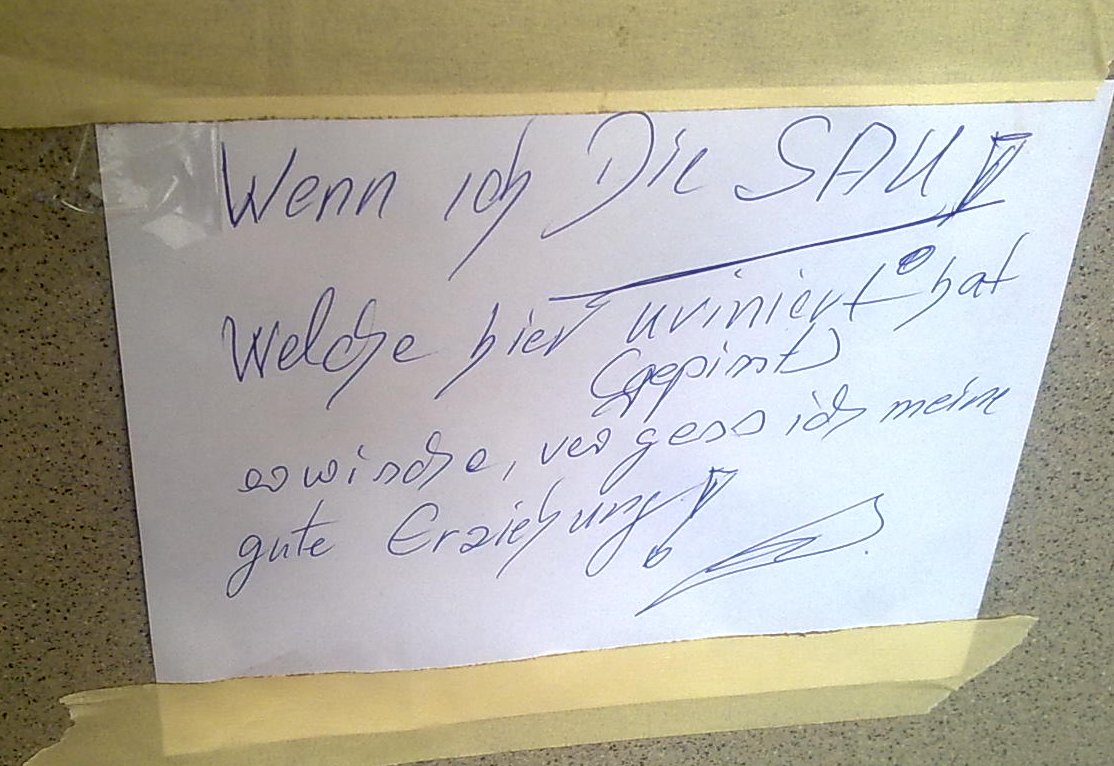 Wenn ich Die SAU!
Welche hier uriniert hat
(gepisst)
erwische, vergess ich meine
gute Erziehung!